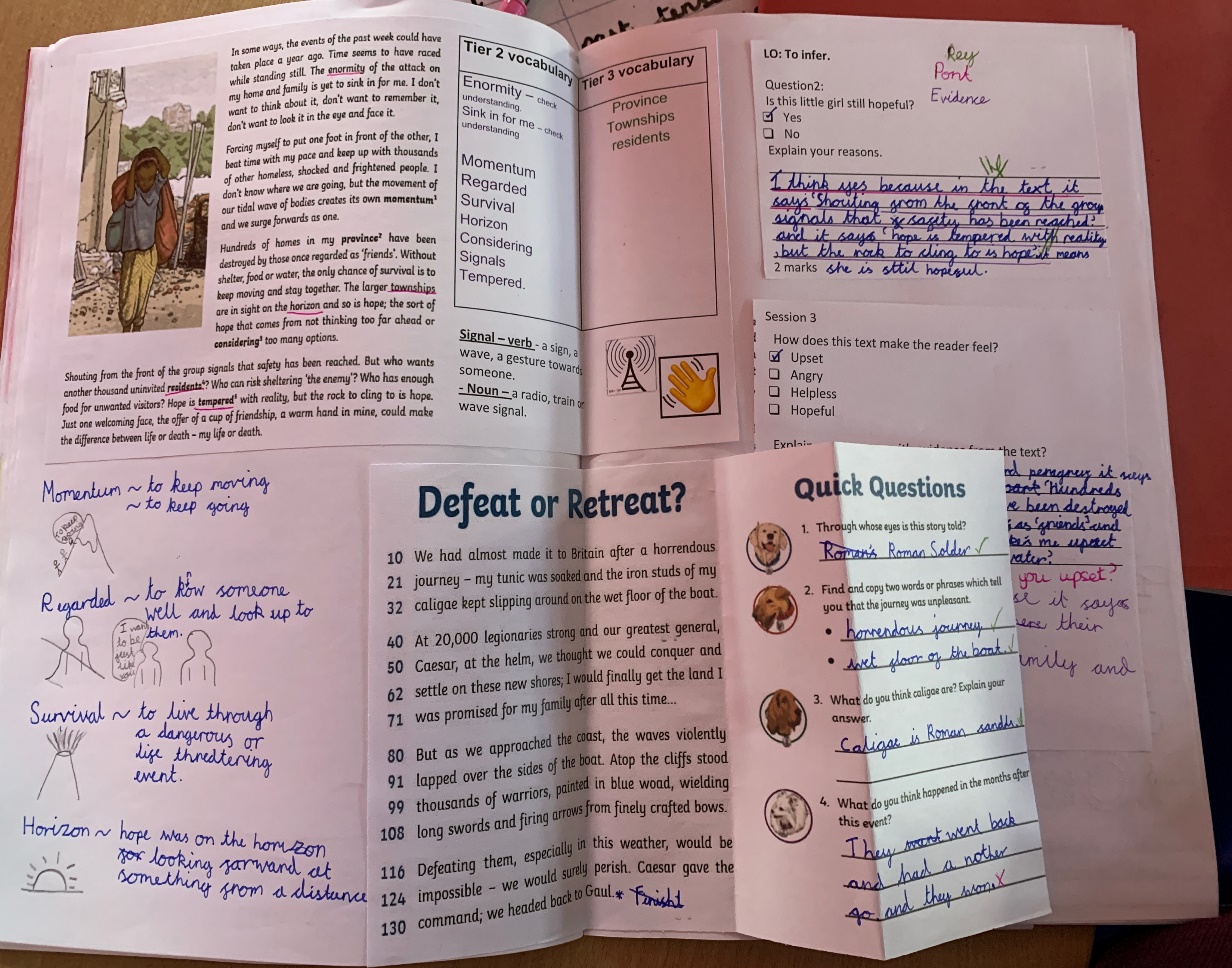 past tense
In some ways, the events of the past week could have
taken place a year ago. Time seems to have raced
while standing still. The enormity of the attack on
my home and family is yet to sink in for me. I don't
want to think about it, don't want to remember it,
don't want to look it in the eye and face it.
Forcing myself to put one foot in front of the other, I
beat time with my pace and keep up with thousands
of other homeless, shocked and frightened people. I
don't know where we are going, but the movement of
our tidal wave of bodies creates its own momentum¹
and we surge forwards as one.
Hundreds of homes in my province² have been
destroyed by those once regarded as 'friends'. Without
shelter, food or water, the only chance of survival is to
keep moving and stay together. The larger townships
are in sight on the horizon and so is hope; the sort of
hope that comes from not thinking too far ahead or
considering³ too many options.
Shouting from the front of the group signals that safety has been reached. But who wants
another thousand uninvited residents⁴? Who can risk sheltering 'the enemy'? Who has enough
food for unwanted visitors? Hope is tempered⁵ with reality, but the rock to cling to is hope.
Just one welcoming face, the offer of a cup of friendship, a warm hand in mine, could make
the difference between life or death – my life or death.
Tier 2 vocabulary
Enormity – check
understanding.
Sink in for me – check
understanding
Momentum
Regarded
Survival
Horizon
Considering
Signals
Tempered.
Tier 3 vocabulary
Province
Townships
residents
Signal – verb - a sign, a
wave, a gesture towards
someone.
- Noun – a radio, train or
wave signal.
LO: To infer.
Key
Point
Evidence
Question2:
Is this little girl still hopeful?
Yes
No
Explain your reasons.
I think yes because in the text it
says 'Shouting from the front of the group
signals that safety has been reached.'
and it says 'hope is tempered with reality
but the rock to cling to is hope' it means
2 marks she is sttil hopeful.
Session 3
How does this text make the reader feel?
Upset
Angry
Helpless
Hopeful
the text?
it says
Hundreds
been destroyed
as 'friends' and
me upset
you upset?
it says
their
and
Momentum ~ to keep moving
~ to keep going
Regarded ~ to know someone
well and look up to
them.
I want
to be
just
like
you
Survival ~ to live through
a dangerous or
life thredtering
event.
Horizon ~ hope was on the horrizon
for looking farward at
something from a distance
Defeat or Retreat?
10 We had almost made it to Britain after a horrendous
21 journey – my tunic was soaked and the iron studs of my
32 caligae kept slipping around on the wet floor of the boat.
40 At 20,000 legionaries strong and our greatest general,
50 Caesar, at the helm, we thought we could conquer and
62 settle on these new shores; I would finally get the land I
71 was promised for my family after all this time...
80 But as we approached the coast, the waves violently
91 lapped over the sides of the boat. Atop the cliffs stood
99 thousands of warriors, painted in blue woad, wielding
108 long swords and firing arrows from finely crafted bows.
116 Defeating them, especially in this weather, would be
124 impossible – we would surely perish. Caesar gave the
130 command; we headed back to Gaul.* Finish1
Quick Questions
1. Through whose eyes is this story told?
Roman's Roman Solder
2. Find and copy two words or phrases which tell
you that the journey was unpleasant.
• horrendous journey
• wet floor of the boat.
3. What do you think caligae are? Explain your
answer.
Caligae is Roman sandls.
4. What do you think happened in the months after
this event?
They went back
and had a nother
go and they